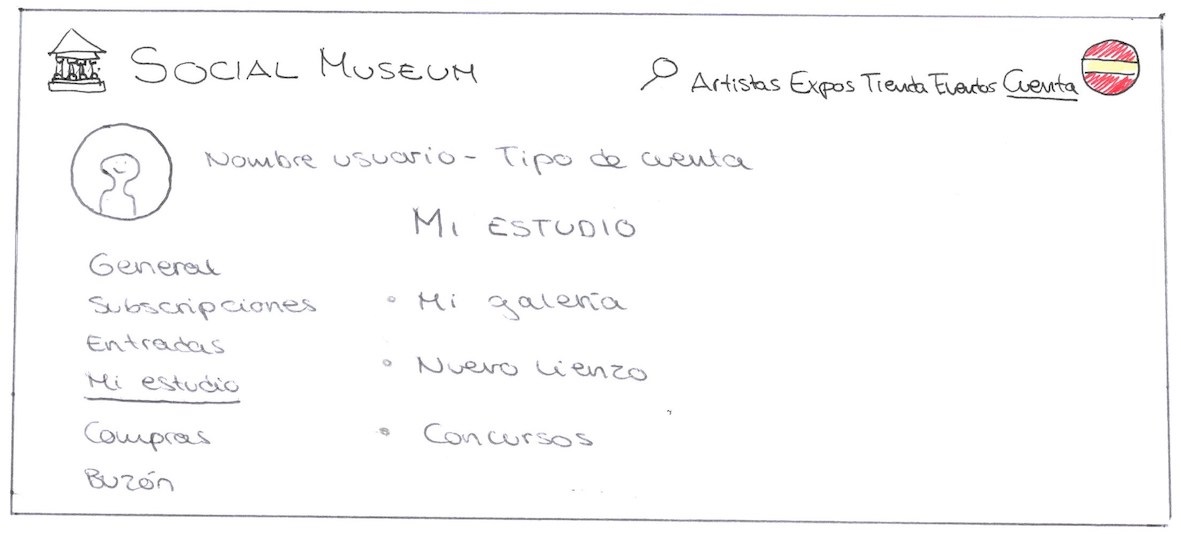 SOCIAL MUSEUM
Artistas Expos Tienda Eventos Cuenta
Nombre usuario - Tipo de cuenta
MI ESTUDIO
General
Subscripciones
Entradas
Mi estudio
Compras
Buzón
• Mi galería
• Nuevo lienzo
• Concursos